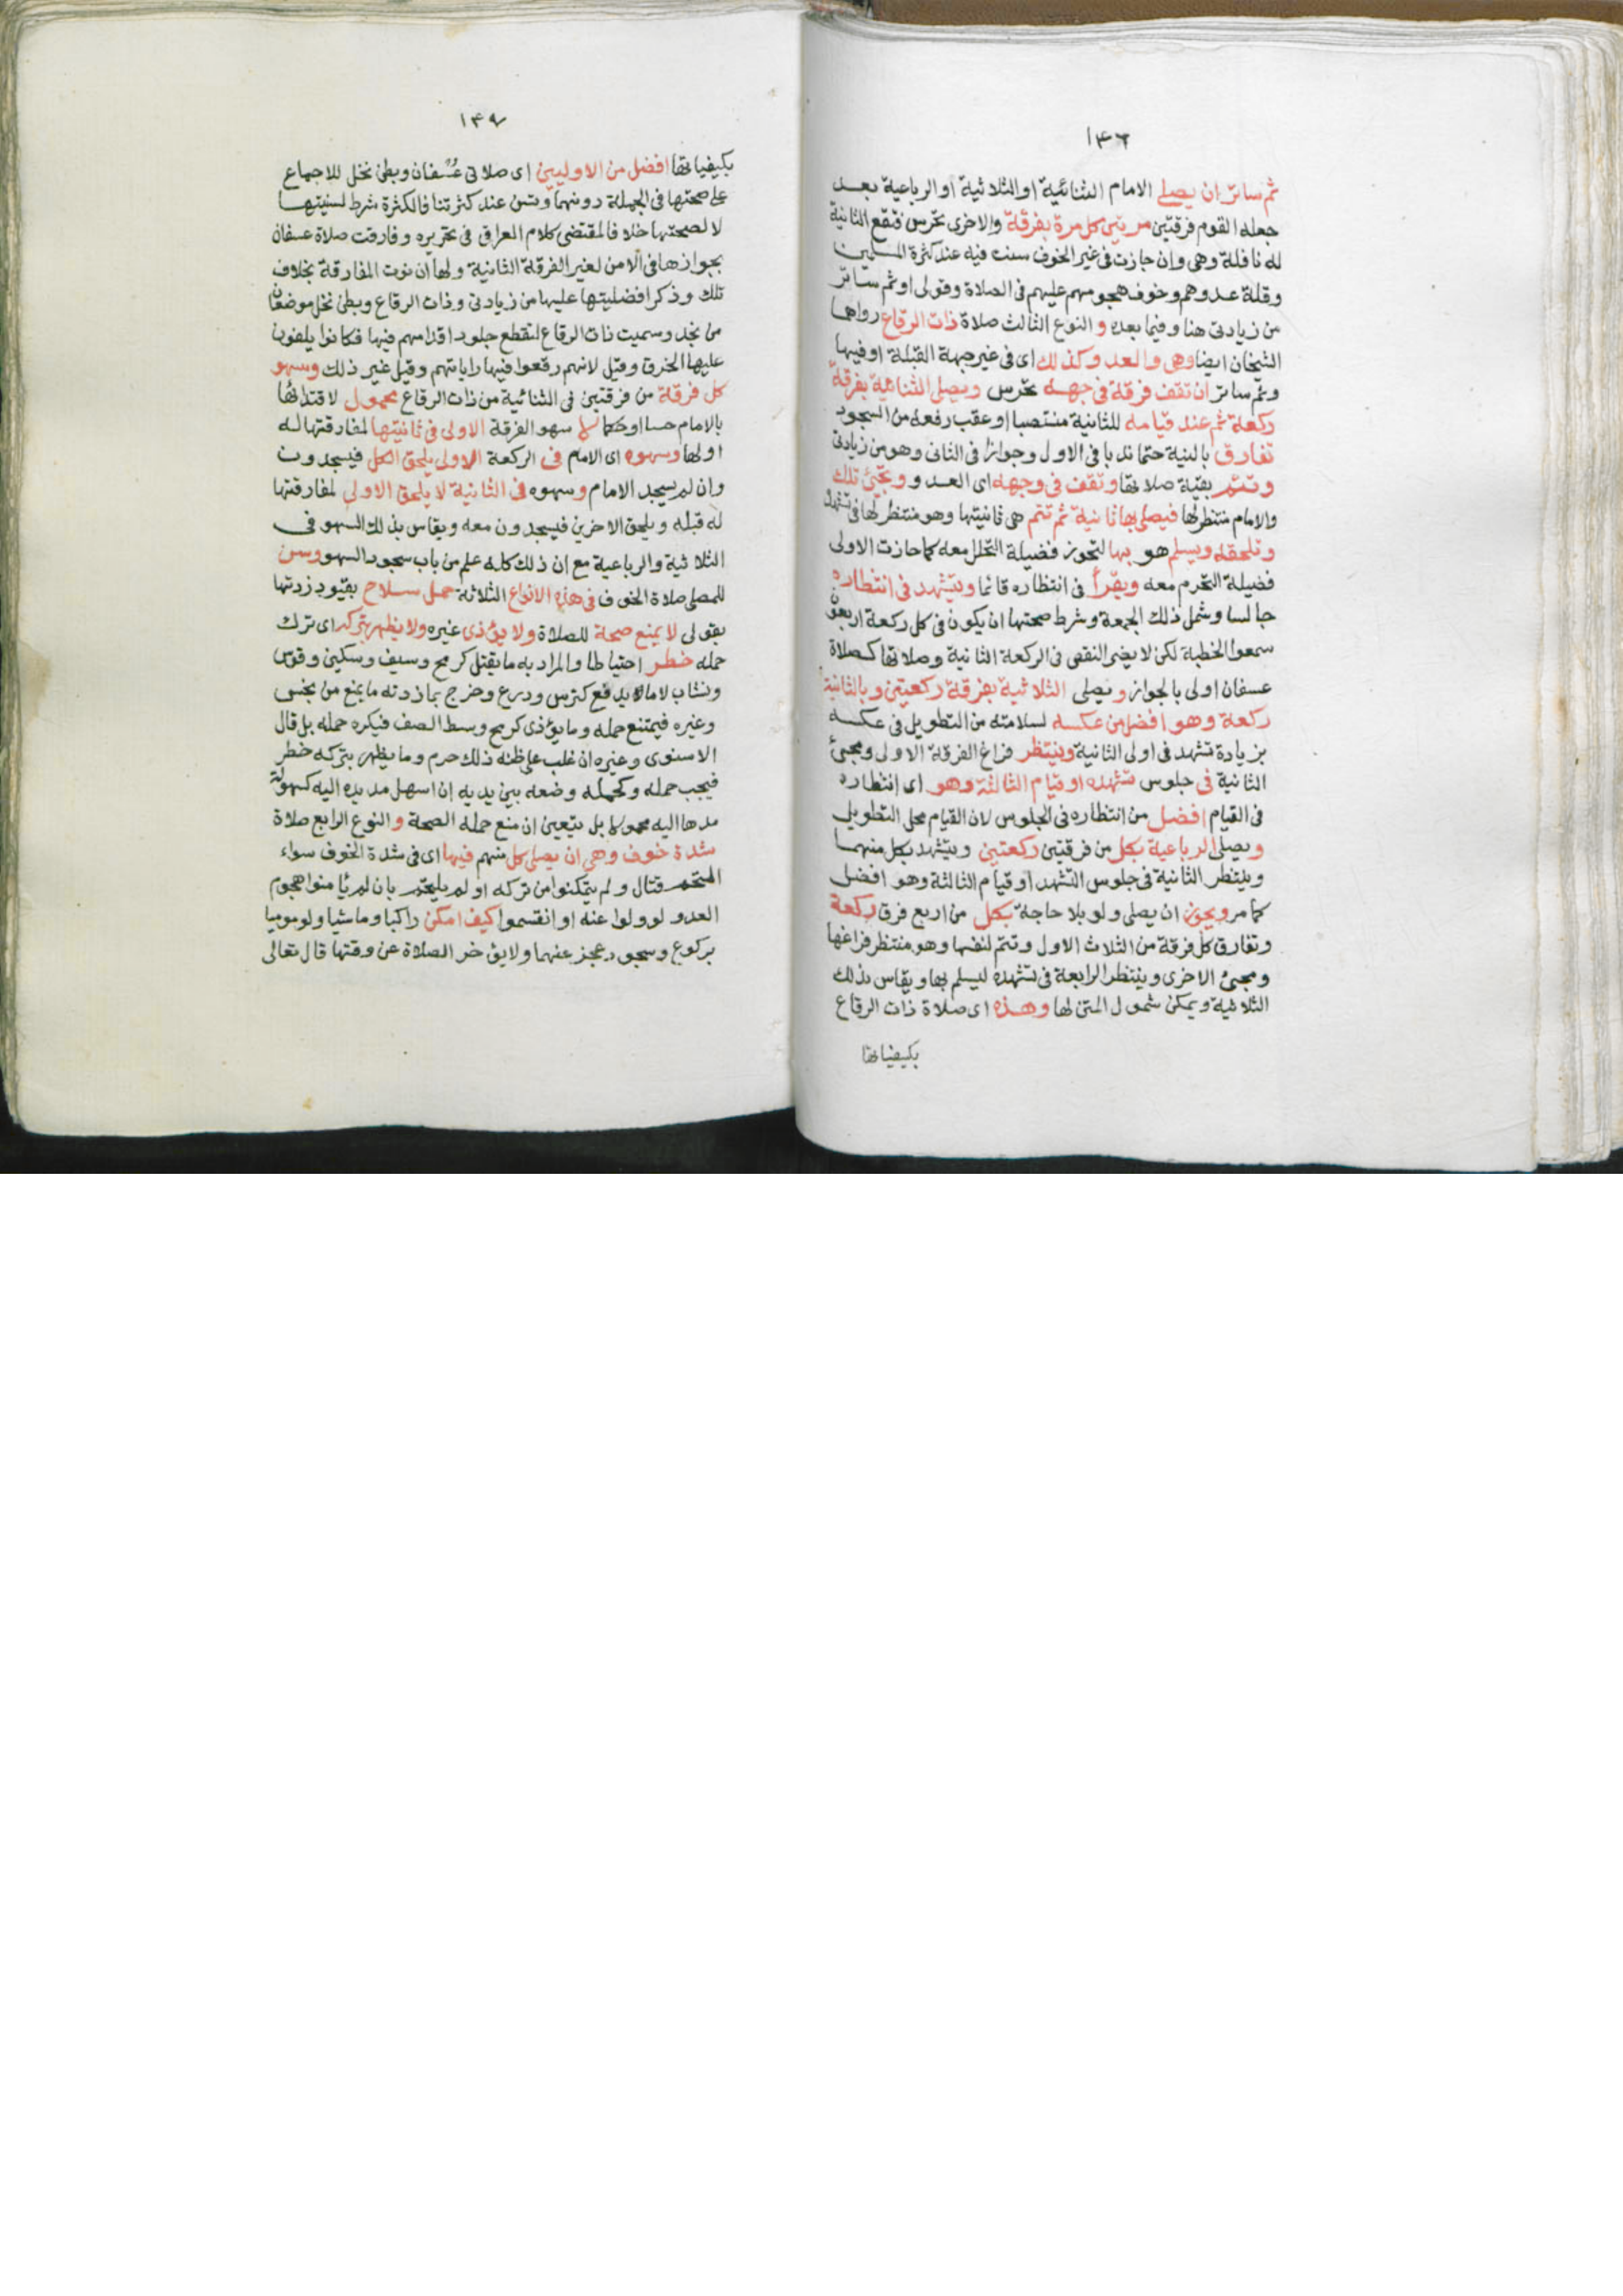 ١٤٦
ثم ساتر ان يصلي الامام الثنائية او الثلاثية او الرباعية بعد
جعله القوم فرقتين مرتين كل مرة بفرقة والاخرى تحرس فتقع الثانية
له نافلة وهي وان جازت في غير الخوف سنت فيه عند كثرة المسلمين
وقلة عدوهم وخوف هجومهم عليهم في الصلاة وقولي او ثم ساتر
من زيادتي هنا وفيما بعده و النوع الثالث صلاة ذات الرقاع رواها
الشيخان ايضا وهي والعدو كذلك اي في غير جهة القبلة او فيها
وثم ساتر ان تقف فرقة في جهة تحرس ويصلي الثنائية بفرقة
ركعة ثم عند قيامه للثانية منتصبا او عقب رفعه من السجود
تفارق بالنية حتما ندبا في الاول وجوازا في الثاني وهو من زيادتي
وتتم بقية صلاتها وتقف في وجهه اي العدو وتجئ تلك
والامام منتظر لها فيصلي بها ثانية ثم تتم هي ثانيتها وهو منتظر لها في تشهده
وتلحقه ويسلم هو بها لتحوز فضيلة التحلل معه كما حازت الاولى
فضيلة التحرم معه ويقرأ في انتظاره قائما ويتشهد في انتظاره
جالسا وشمل ذلك الجمعة وشرط صحتها ان يكون في كل ركعة اربعون
سمعوا الخطبة لكن لا يضر النقص في الركعة الثانية وصلاتها كصلاة
عسفان اولى بالجواز و يصلي الثلاثية بفرقة ركعتين وبالثانية
ركعة وهو افضل من عكسه لسلامته من التطويل في عكسه
بزيادة تشهد في اولى الثانية وينتظر فراغ الفرقة الاولى ومجئ
الثانية في جلوس تشهده او قيام الثالثة وهو اي انتظاره
في القيام افضل من انتظاره في الجلوس لان القيام محل التطويل
و يصلي الرباعية بكل من فرقتين ركعتين ويتشهد بكل منهما
وينتظر الثانية في جلوس التشهد او قيام الثالثة وهو افضل
كما مر ويجوز ان يصلي ولو بلا حاجة بكل من اربع فرق ركعة
وتفارق كل فرقة من الثلاث الاول وتتم لنفسها وهو منتظر فراغها
ومجئ الاخرى وينتظر الرابعة في تشهده ليسلم بها ويقاس بذلك
الثلاثية ويمكن شمول المتن لها وهذه اي صلاة ذات الرقاع
بكيفياتها
١٤٧
بكيفياتها افضل من الاوليين اي صلاتي عسفان وبطن نخل للاجماع
على صحتها في الجملة دونهما وتسن عند كثرتنا فالكثرة شرط لسنيتها
لا لصحتها خلافا لمقتضى كلام العراقي في تحريره وفارقت صلاة عسفان
بجوازها في الامن لغير الفرقة الثانية ولها ان نوت المفارقة بخلاف
تلك وذكر افضليتها عليها من زيادتي وذات الرقاع وبطن نخل موضعان
من نجد وسميت ذات الرقاع لتقطع جلود اقدامهم فيها فكانوا يلفون
عليها الخرق وقيل لانهم رقعوا فيها راياتهم وقيل غير ذلك وسهو
كل فرقة من فرقتين في الثنائية من ذات الرقاع محمول لاقتدائها
بالامام حسا او حكما لا سهو الفرقة الاولى في ثانيتها لمفارقتها له
اولها وسهوه اي الامام في الركعة الاولى يلحق الكل فيسجدون
وان لم يسجد الامام وسهوه في الثانية لا يلحق الاولى لمفارقتها
له قبله ويلحق الاخرين فيسجدون معه ويقاس بذلك السهو في
الثلاثية والرباعية مع ان ذلك كله علم من باب سجود السهو وسن
للمصلي صلاة الخوف في هذه الانواع الثلاثة حمل سلاح بقيود زدتها
بقولي لا يمنع صحة للصلاة ولا يؤذي غيره ولا يظهر بتركه اي ترك
حمله خطر احتياطا والمراد به ما يقتل كرمح وسيف وسكين وقوس
ونشاب لا ما لا يدفع كترس ودرع وخرج بما زدته ما يمنع من نجس
وغيره فيمتنع حمله وما يؤذي كرمح وسط الصف فيكره حمله بل قال
الاسنوي وغيره ان غلب على ظنه ذلك حرم وما يظهر بتركه خطر
فيجب حمله وكحمله وضعه بين يديه ان اسهل مد يده اليه كسهولة
مدها اليه محمولا بل يتعين ان منع حمله الصحة و النوع الرابع صلاة
شدة خوف وهي ان يصلي كل منهم فيها اي في شدة الخوف سواء
التحم قتال ولم يتمكنوا من تركه او لم يلتحم بان لم يأمنوا هجوم
العدو لو ولوا عنه او انقسموا كيف امكن راكبا وماشيا ولو موميا
بركوع وسجود عجز عنهما ولا يؤخر الصلاة عن وقتها قال تعالى